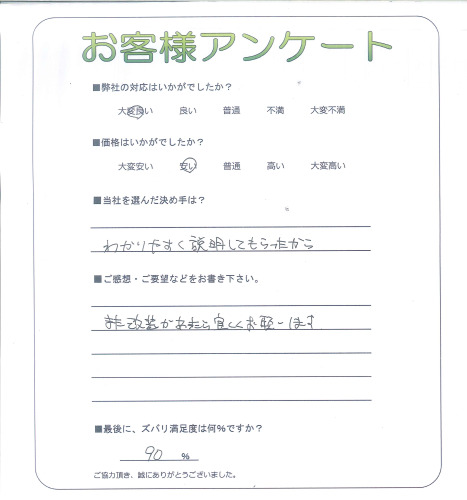 お客様アンケート
■弊社の対応はいかがでしたか？
大変良い 良い 普通 不満 大変不満
■価格はいかがでしたか？
大変安い 安い 普通 高い 大変高い
■当社を選んだ決め手は？
わかりやすく説明してもらったから
■ご感想・ご要望などをお書き下さい。
また改装があったら宜しくお願いします
■最後に、ズバリ満足度は何%ですか？
90 %
ご協力頂き、誠にありがとうございました。